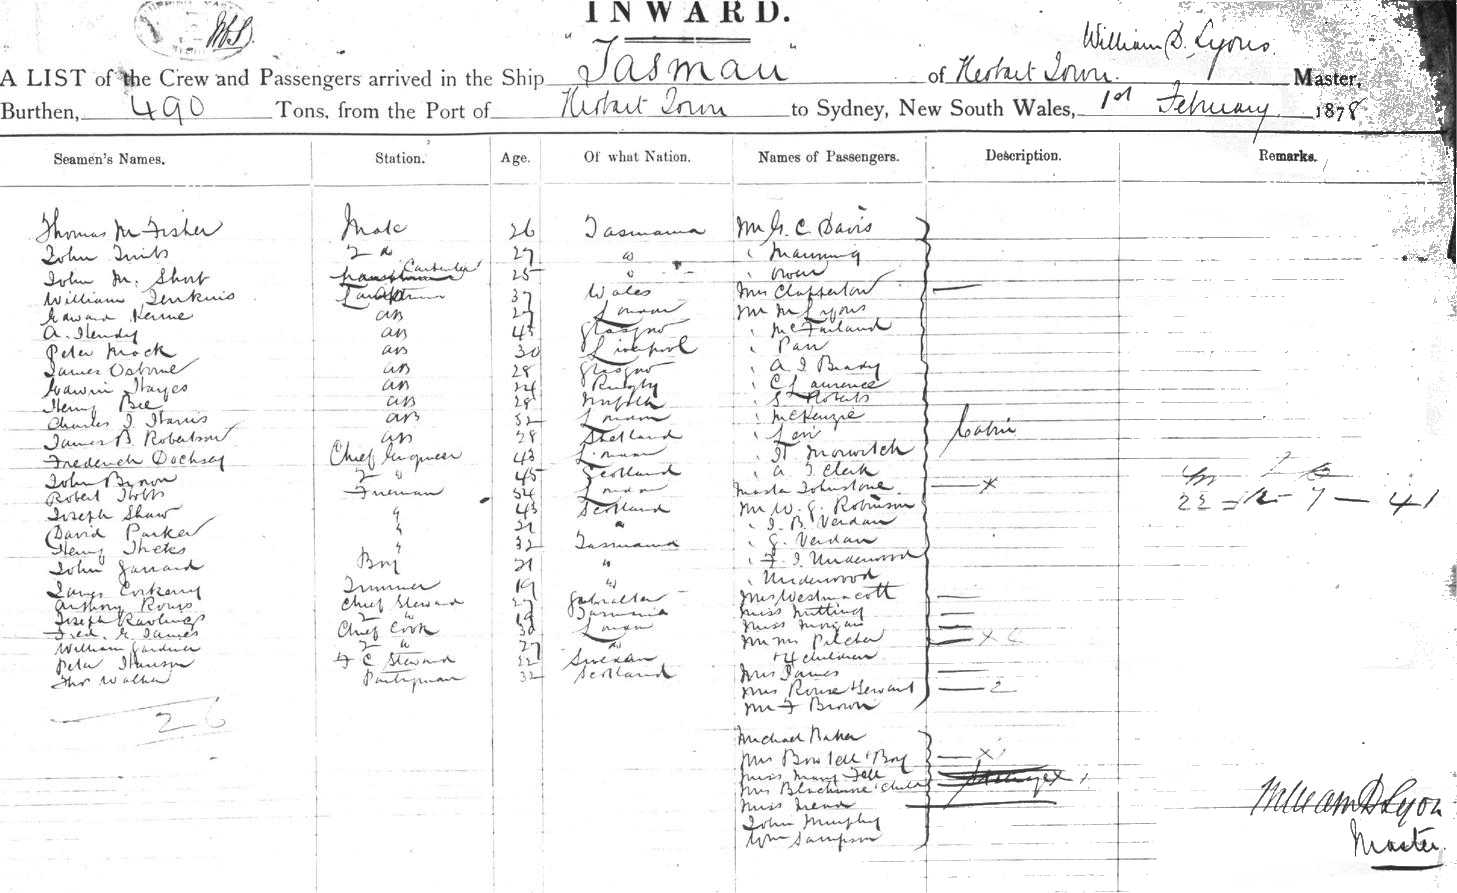 INWARD.
William D. Lyons
A LIST of the Crew and Passengers arrived in the Ship "Tasman" of Hobart Town Master,
Burthen, 490 Tons, from the Port of Hobart Town to Sydney, New South Wales, 1st February 1878
Seamen's Names. Station. Age. Of what Nation. Names of Passengers. Description. Remarks.
Thomas M Fisher Mate 26 Tasmania Mr G. C Davis
John 2 " 27 " " Manning
John M. Short Carpenter 25 " " Owen
William Jenkins Lamptrimmer 37 Wales Mrs Clapperton
Edward AB 27 London Mr M Lyons
A. Hendy AB 45 Glasgow " McFarland
Peter Mack AB 30 Liverpool " Parr
James Osborne AB 28 Glasgow " A I Brady
Hayes AB 24 Rugby " C Laurence
Henry Bee AB 28 Norfolk " Roberts
Charles I Harris AB 52 London " McKenzie
James B Robertson AB 28 Shetland " Levi Cabin
Frederick Chief Engineer 43 London " H Morwitch
John Byron 2 " 45 Scotland " A I Clark
Robert Hobbs Fireman 34 London Johnstone x
Joseph Shaw " 43 Scotland Mr W. G. Robinson 22 7 — 41
David Parker " 21 " " I. B. Verdan
Henry Hicks " 32 Tasmania " G. Verdan
John Garrard Boy 21 " " F. I. Underwood
James Corkerry Trimmer 19 " " Underwood
Anthony Chief Steward 27 Gibraltar Mrs Westmacott
Joseph Rawlings 2 " 19 Tasmania Miss Nutting
Fred. G. James Chief Cook 30 London Miss Morgan
William Gardner 2 " 27 " Mr Mrs Pilcher x
Peter F C Steward 22 Sweden + 4 children
Thos Walker Pantryman 32 Scotland Mrs James
Mrs Rouse + Servant 2
Mr F Brown
26
Michael Baker
Mrs Bowtell + Boy x
Miss Mary Fell
Mrs + child
Miss
John Murphy
Wm Sampson
William D Lyons
Master